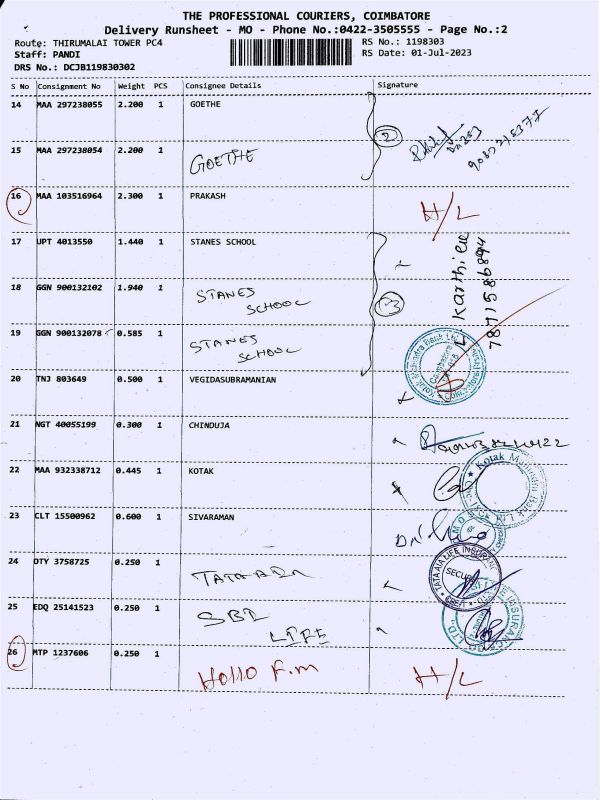 THE PROFESSIONAL COURIERS, COIMBATORE
Delivery Runsheet - MO - Phone No.:0422-3505555 - Page No.:2
Route: THIRUMALAI TOWER PC4 RS No.: 1198303
Staff: PANDI RS Date: 01-Jul-2023
DRS No.: DCJB119830302
S No Consignment No Weight PCS Consignee Details Signature
14 MAA 297238055 2.200 1 GOETHE
2
15 MAA 297238054 2.200 1 GOETHE
16 MAA 103516964 2.300 1 PRAKASH H/L
17 UPT 4013550 1.440 1 STANES SCHOOL
18 GGN 900132102 1.940 1 STANES
SCHOOL
3
Karthi
7871586894
19 GGN 900132078 0.585 1 STANES
SCHOOL
20 TNJ 803649 0.500 1 VEGIDASUBRAMANIAN
21 NGT 40055199 0.300 1 CHINDUJA
22 MAA 932338712 0.445 1 KOTAK
Kotak Mahindra Bank
23 CLT 15500962 0.600 1 SIVARAMAN
24 OTY 3758725 0.250 1 TATA
TATA AIA LIFE INSURANCE
25 EDQ 25141523 0.250 1 SBI
LIFE
26 MTP 1237606 0.250 1 Hollo F.m H/L